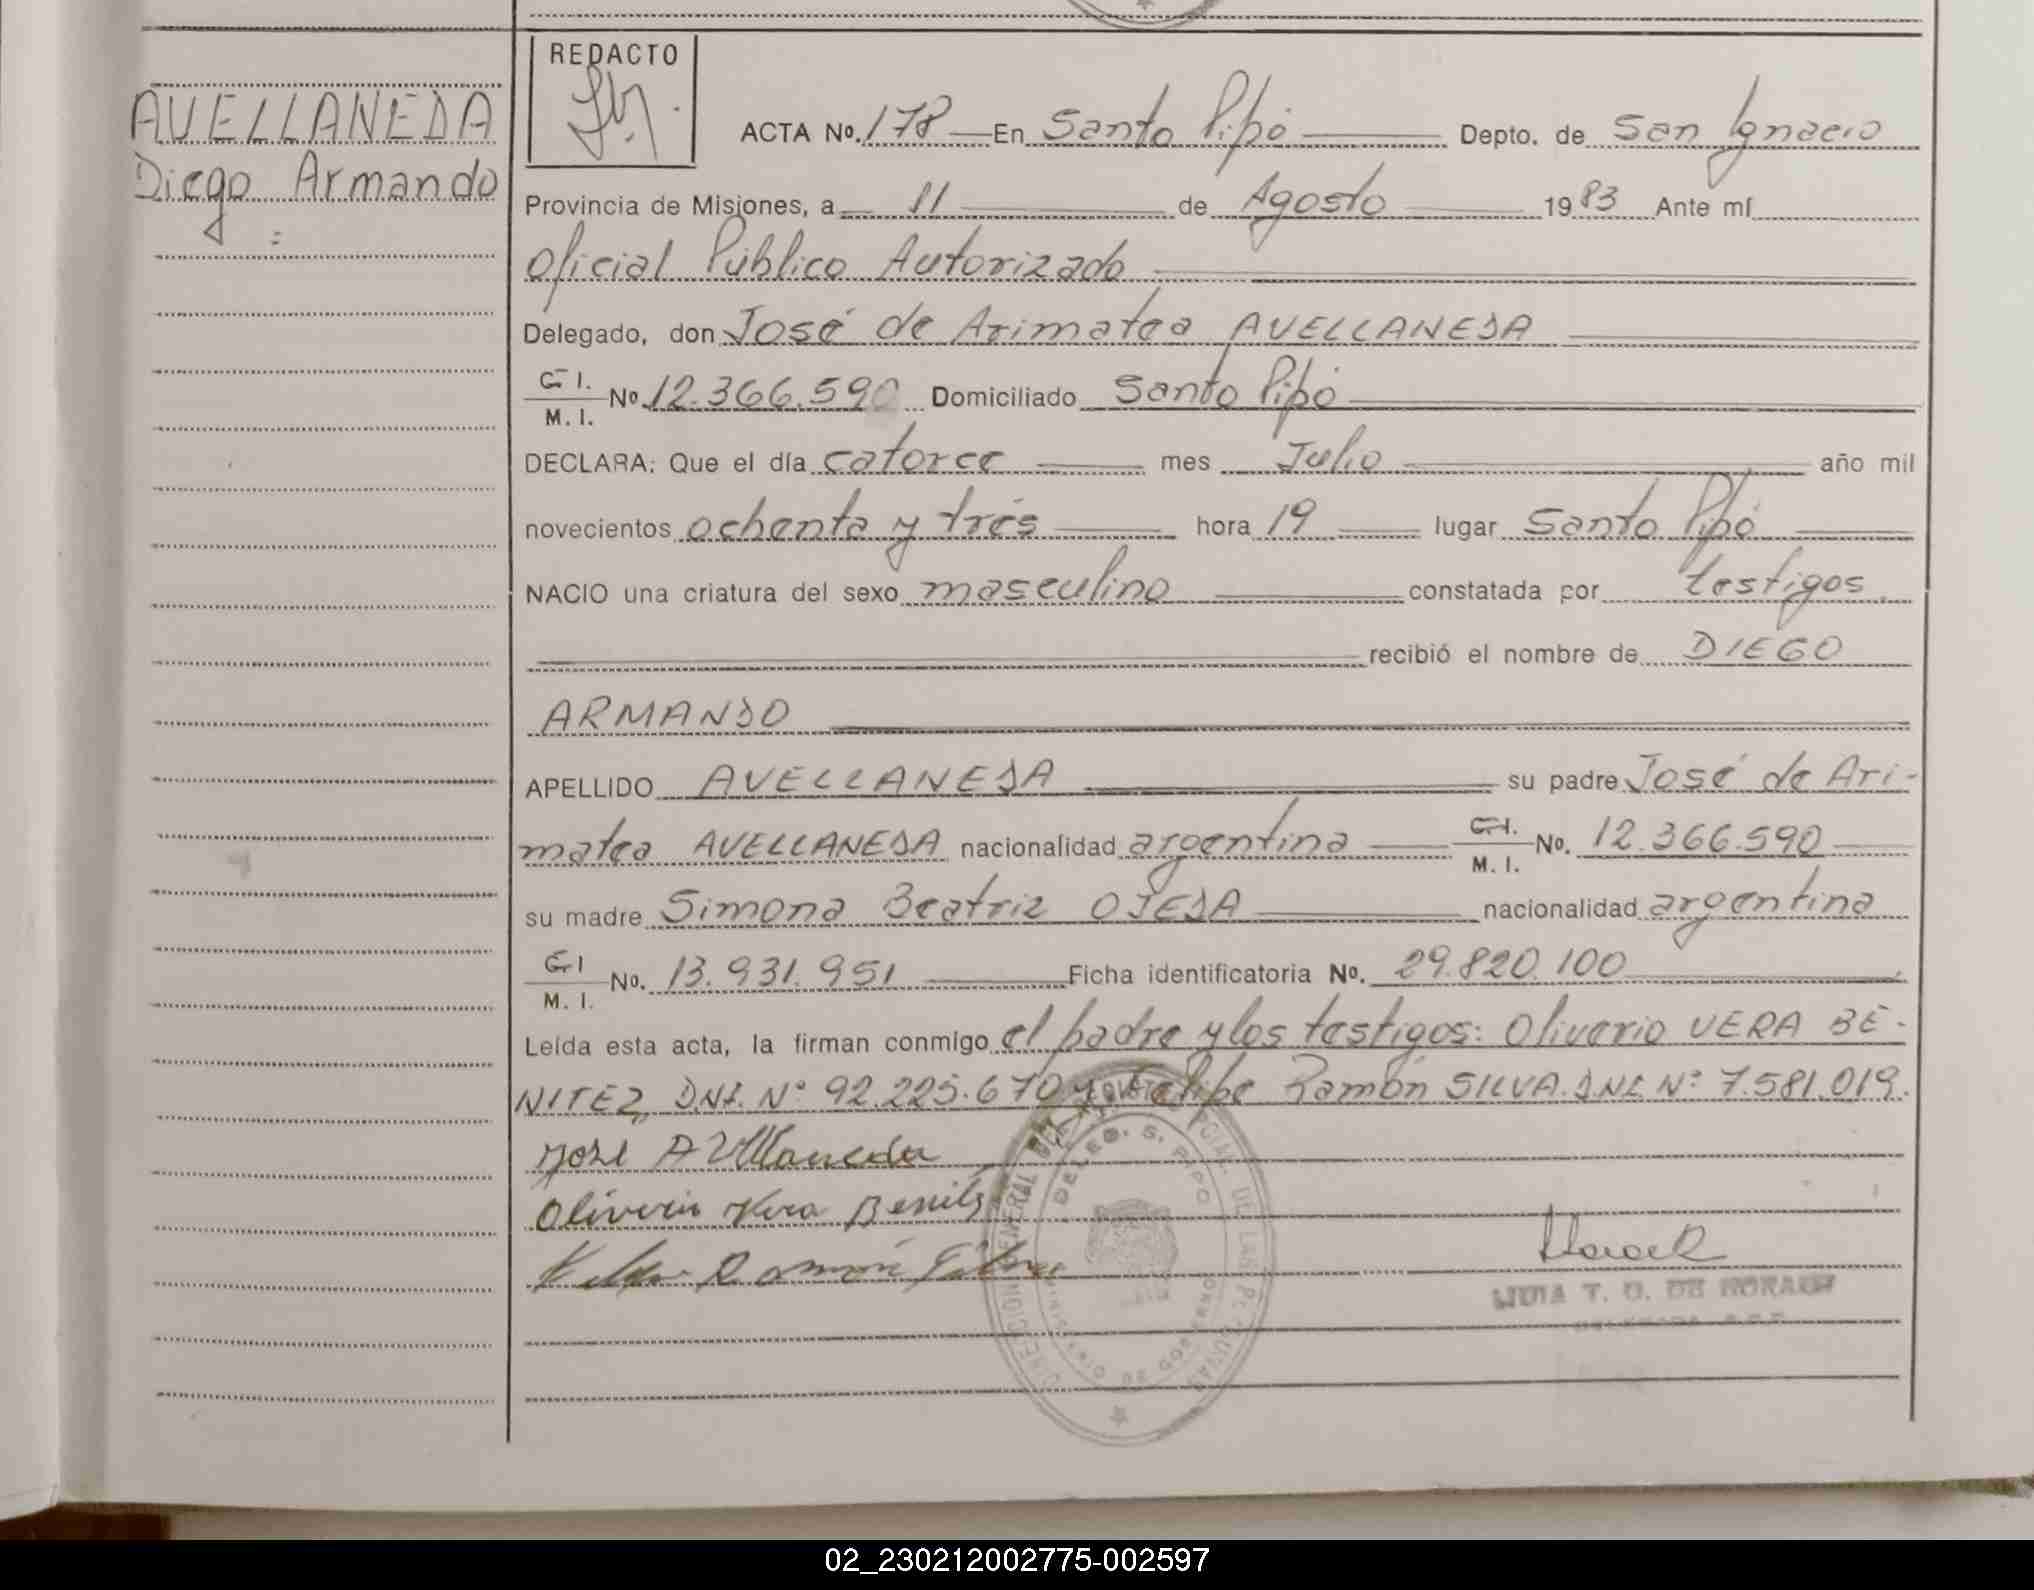 AVELLANEDA
Diego Armando
REDACTO
ACTA No. 178 En Santo Pipó Depto. de San Ignacio
Provincia de Misiones, a 11 de Agosto 1983 Ante mí
Oficial Público Autorizado
Delegado, don José de Arimatea AVELLANEDA
C. I. M. I. No 12.366.590 Domiciliado Santo Pipó
DECLARA: Que el día catorce mes Julio año mil
novecientos ochenta y tres hora 19 lugar Santo Pipó
NACIO una criatura del sexo masculino constatada por testigos
recibió el nombre de DIEGO
ARMANDO
APELLIDO AVELLANEDA su padre José de Ari-
matea AVELLANEDA nacionalidad argentina C.I. M. I. No. 12.366.590
su madre Simona Beatriz OJEDA nacionalidad argentina
C.I M. I. No. 13.931.951 Ficha identificatoria No. 29.820.100
Leída esta acta, la firman conmigo el padre y los testigos: Oliverio VERA BE-
NITEZ, D.N.I. Nº 92.225.670 y Felipe Ramón SILVA. D.N.I. Nº 7.581.019.
José Avellaneda
Oliverio Vera Benitez
Ramón Silva
DELEG. S. PIPO
MINISTERIO DE GOBIERNO
LIDIA T. O. DE
02_230212002775-002597